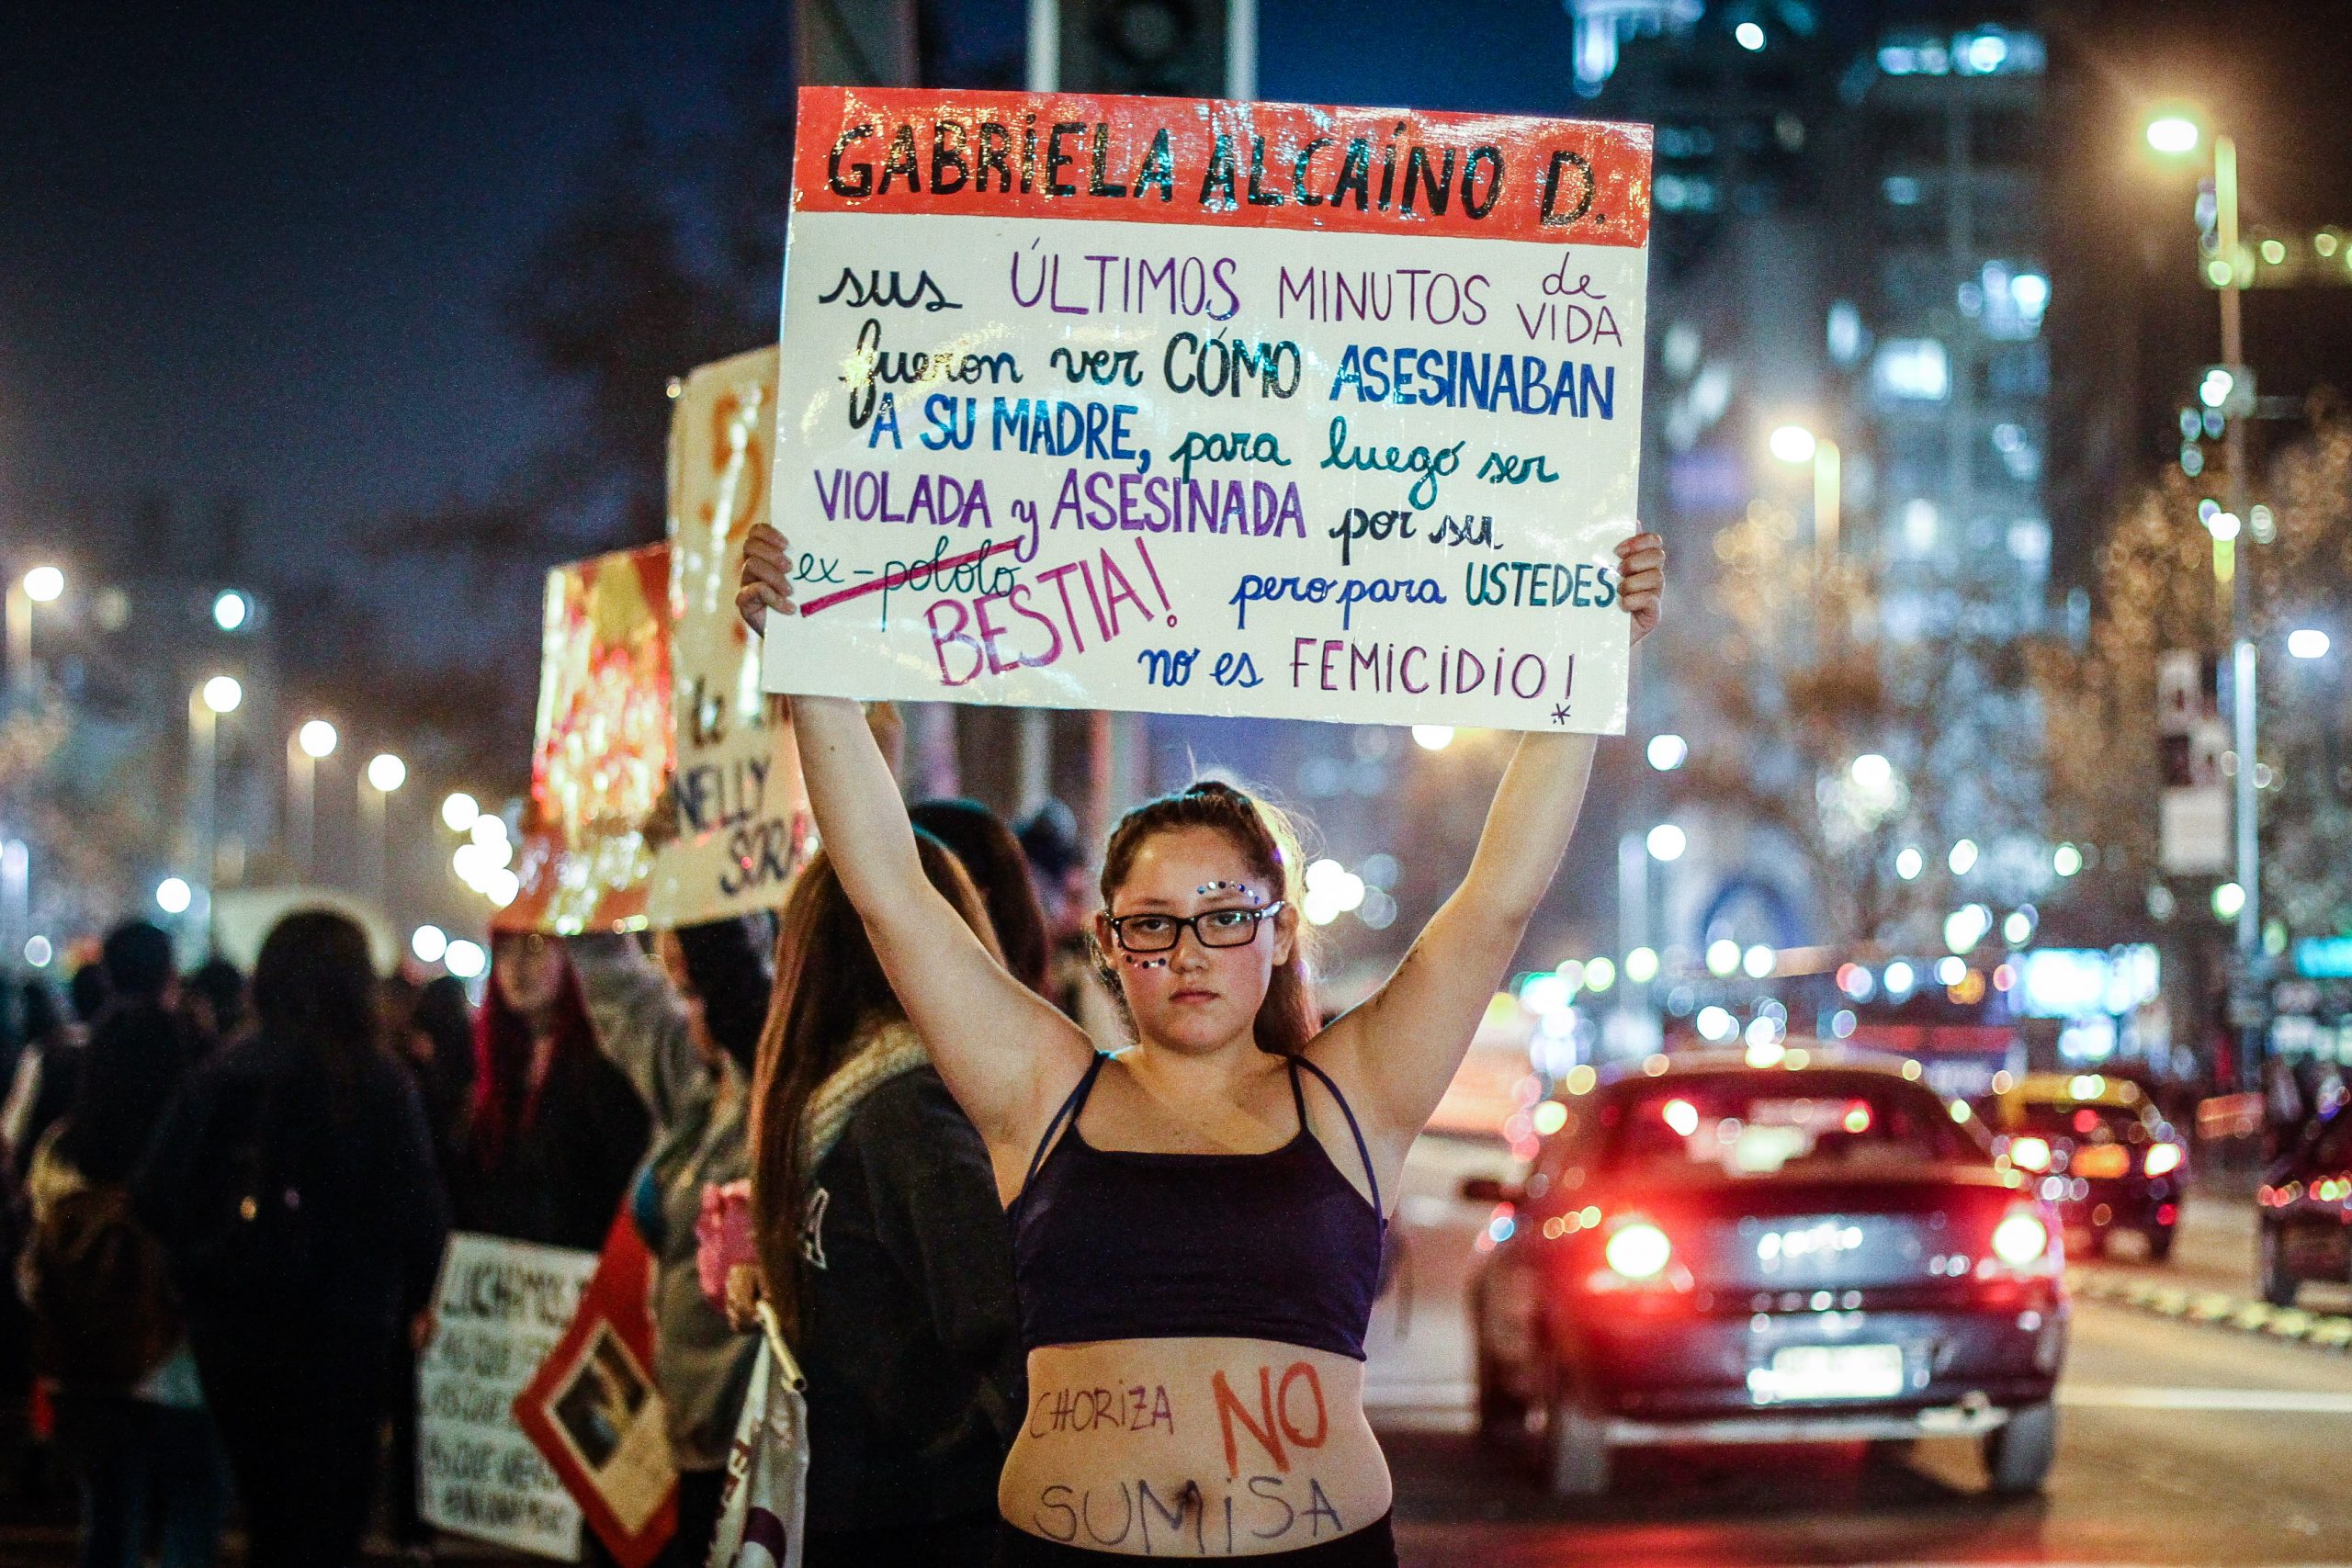 GABRIELA ALCAÍNO D.
sus ÚLTIMOS MINUTOS de VIDA
fueron ver CÓMO ASESINABAN
A SU MADRE, para luego ser
VIOLADA y ASESINADA por su
ex-pololo
BESTIA! pero para USTEDES
no es FEMICIDIO!
*
NELLY
CHORIZA NO
SUMISA